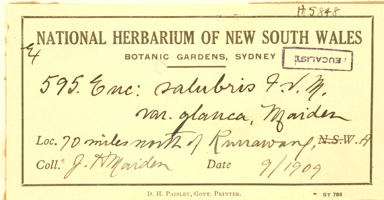 H5848
NATIONAL HERBARIUM OF NEW SOUTH WALES
BOTANIC GARDENS, SYDNEY
EUCALIST
595. Euc: salubris F.v.M.
var. glauca, Maiden
Loc. 70 miles north of Kurrawang, N.S.W. A
Coll. J. H Maiden Date 9/1909
D. H. PAISLEY, GOVT. PRINTER.
ST 788